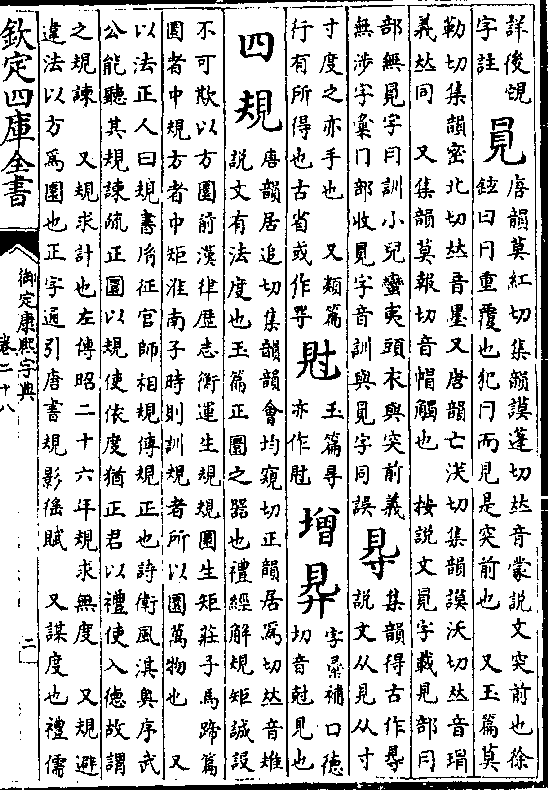 詳後
字註
唐韻莫紅切集韻謨蓬切𠀤音蒙說文突前也徐
鉉曰冃重覆也犯冃而見是突前也 又玉篇莫
勒切集韻密北切𠀤音墨又唐韻亡沃切集韻謨沃切𠀤音瑁
義𠀤同 又集韻莫報切音帽觸也 按說文字載見部冃
部無字冃訓小兒蠻夷頭衣與突前義
無涉字彙冂部收字音訓與字同誤
䙷
集韻得古作㝵
說文从見从寸
寸度之亦手也 又類篇
行有所得也古省或作㝵
玉篇尋
亦作
增
字彙補口德
切音尅見也
四規
唐韻居追切集韻韻會均窺切正韻居爲切𠀤音雉
說文有法度也玉篇正圜之器也禮經解規矩誠設
不可欺以方圜前漢律歷志衡運生規規圜生矩莊子馬蹄篇
圜者中規方者中矩淮南子時則訓規者所以圜萬物也 又
以法正人曰規書胤征官師相規傳規正也詩衛風淇奧序武
公能聽其規諫疏正圜以規使依度猶正君以禮使入德故謂
之規諫 又規求計也左傳昭二十六年規求無度 又規避
違法以方爲圜也正字通引唐書規影徭賦 又謀度也禮儒
欽定四庫全書
御定康熙字典
卷二十八
二